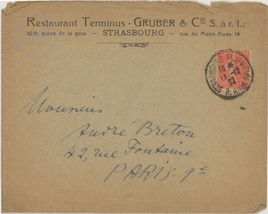 Restaurant Terminus - GRUBER & Cie S. à r. l.
10/11, place de la gare - STRASBOURG - rue du Maire Kuss, 14
Monsieur
André Breton
42, rue Fontaine
PARIS 9e